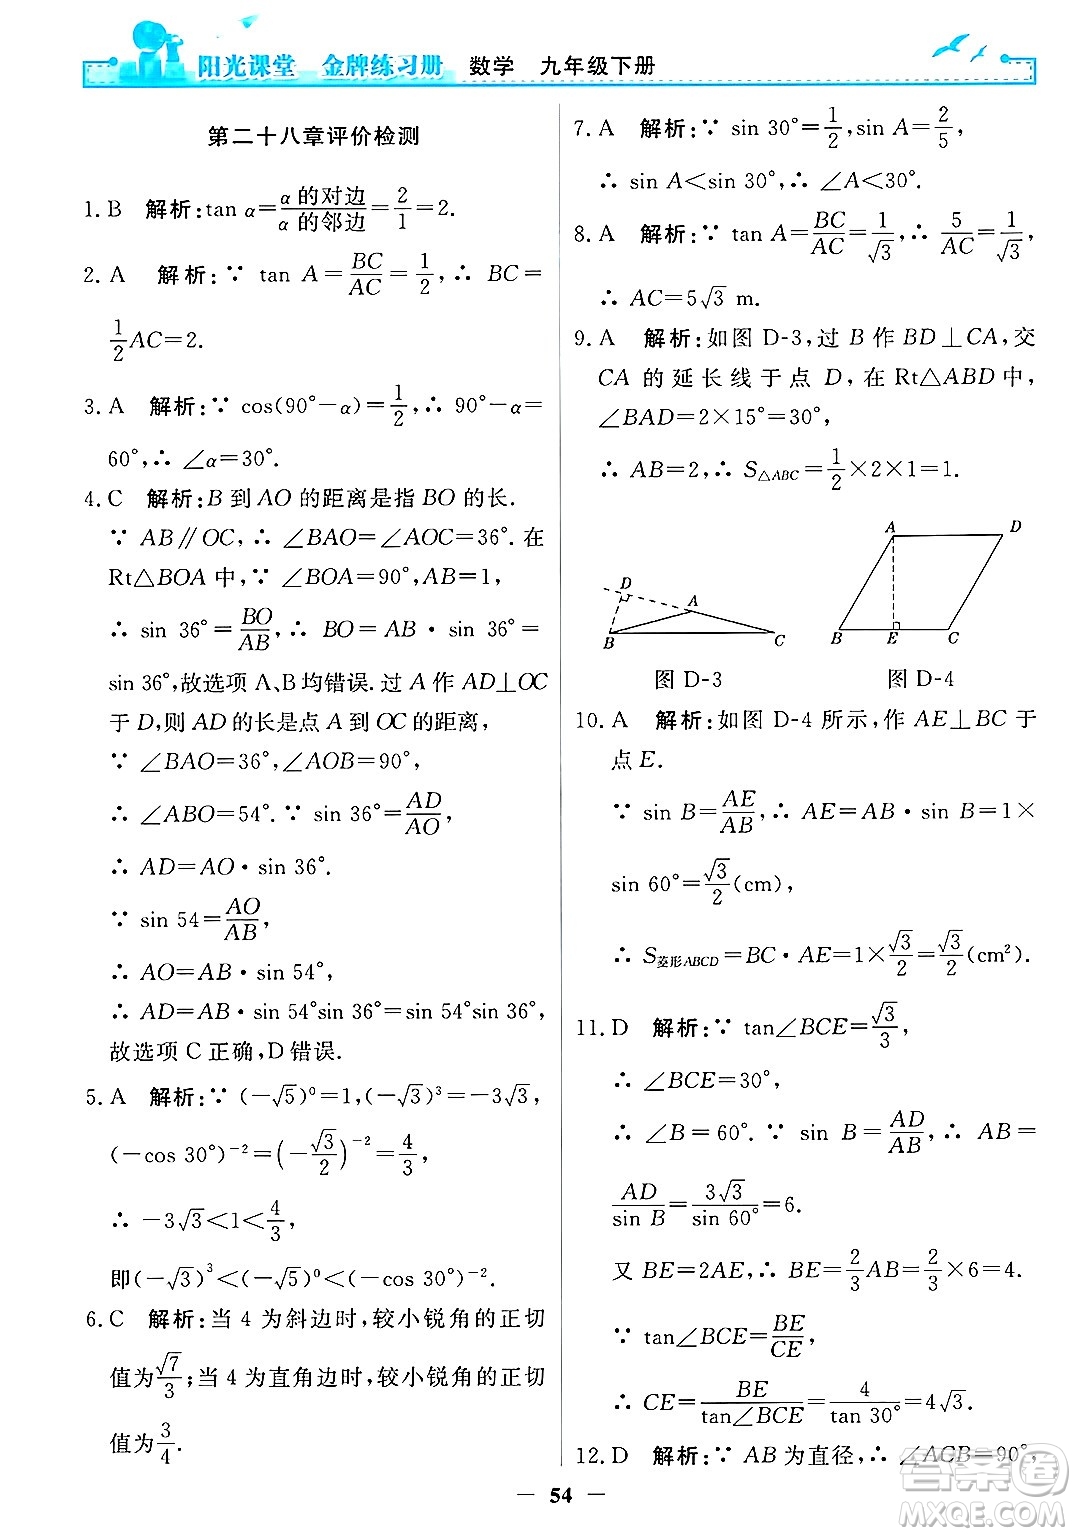 阳光课堂 金牌练习册 数学 九年级下册
第二十八章评价检测
1. B 解析:tan α=α的对边/α的邻边=2/1=2.
2. A 解析:∵ tan A=BC/AC=1/2,∴ BC=
1/2AC=2.
3. A 解析:∵ cos(90°－α)=1/2,∴ 90°－α=
60°,∴ ∠α=30°.
4. C 解析:B 到 AO 的距离是指 BO 的长.
∵ AB∥OC,∴ ∠BAO=∠AOC=36°. 在
Rt△BOA 中,∵ ∠BOA=90°,AB=1,
∴ sin 36°=BO/AB,∴ BO=AB·sin 36°=
sin 36°,故选项 A、B 均错误. 过 A 作 AD⊥OC
于 D,则 AD 的长是点 A 到 OC 的距离,
∵ ∠BAO=36°,∠AOB=90°,
∴ ∠ABO=54°. ∵ sin 36°=AD/AO,
∴ AD=AO·sin 36°.
∵ sin 54=AO/AB,
∴ AO=AB·sin 54°,
∴ AD=AB·sin 54°sin 36°=sin 54°sin 36°,
故选项 C 正确,D 错误.
5. A 解析:∵ (－√5)⁰=1,(－√3)³=－3√3,
(－cos 30°)⁻²=(－√3/2)⁻²=4/3,
∴ －3√3<1<4/3,
即(－√3)³<(－√5)⁰<(－cos 30°)⁻².
6. C 解析:当 4 为斜边时,较小锐角的正切
值为√7/3;当 4 为直角边时,较小锐角的正切
值为3/4.
7. A 解析:∵ sin 30°=1/2,sin A=2/5,
∴ sin A<sin 30°,∴ ∠A<30°.
8. A 解析:∵ tan A=BC/AC=1/√3,∴ 5/AC=1/√3,
∴ AC=5√3 m.
9. A 解析:如图 D-3,过 B 作 BD⊥CA,交
CA 的延长线于点 D,在 Rt△ABD 中,
∠BAD=2×15°=30°,
∴ AB=2,∴ S△ABC=1/2×2×1=1.
D A B C
A D B E C
图 D-3 图 D-4
10. A 解析:如图 D-4 所示,作 AE⊥BC 于
点 E.
∵ sin B=AE/AB,∴ AE=AB·sin B=1×
sin 60°=√3/2(cm),
∴ S菱形ABCD=BC·AE=1×√3/2=√3/2(cm²).
11. D 解析:∵ tan∠BCE=√3/3,
∴ ∠BCE=30°,
∴ ∠B=60°. ∵ sin B=AD/AB,∴ AB=
AD/sin B=3√3/sin 60°=6.
又 BE=2AE,∴ BE=2/3AB=2/3×6=4.
∵ tan∠BCE=BE/CE,
∴ CE=BE/tan∠BCE=4/tan 30°=4√3.
12. D 解析:∵ AB 为直径,∴ ∠ACB=90°,
54
答案圈
MXQE.COM